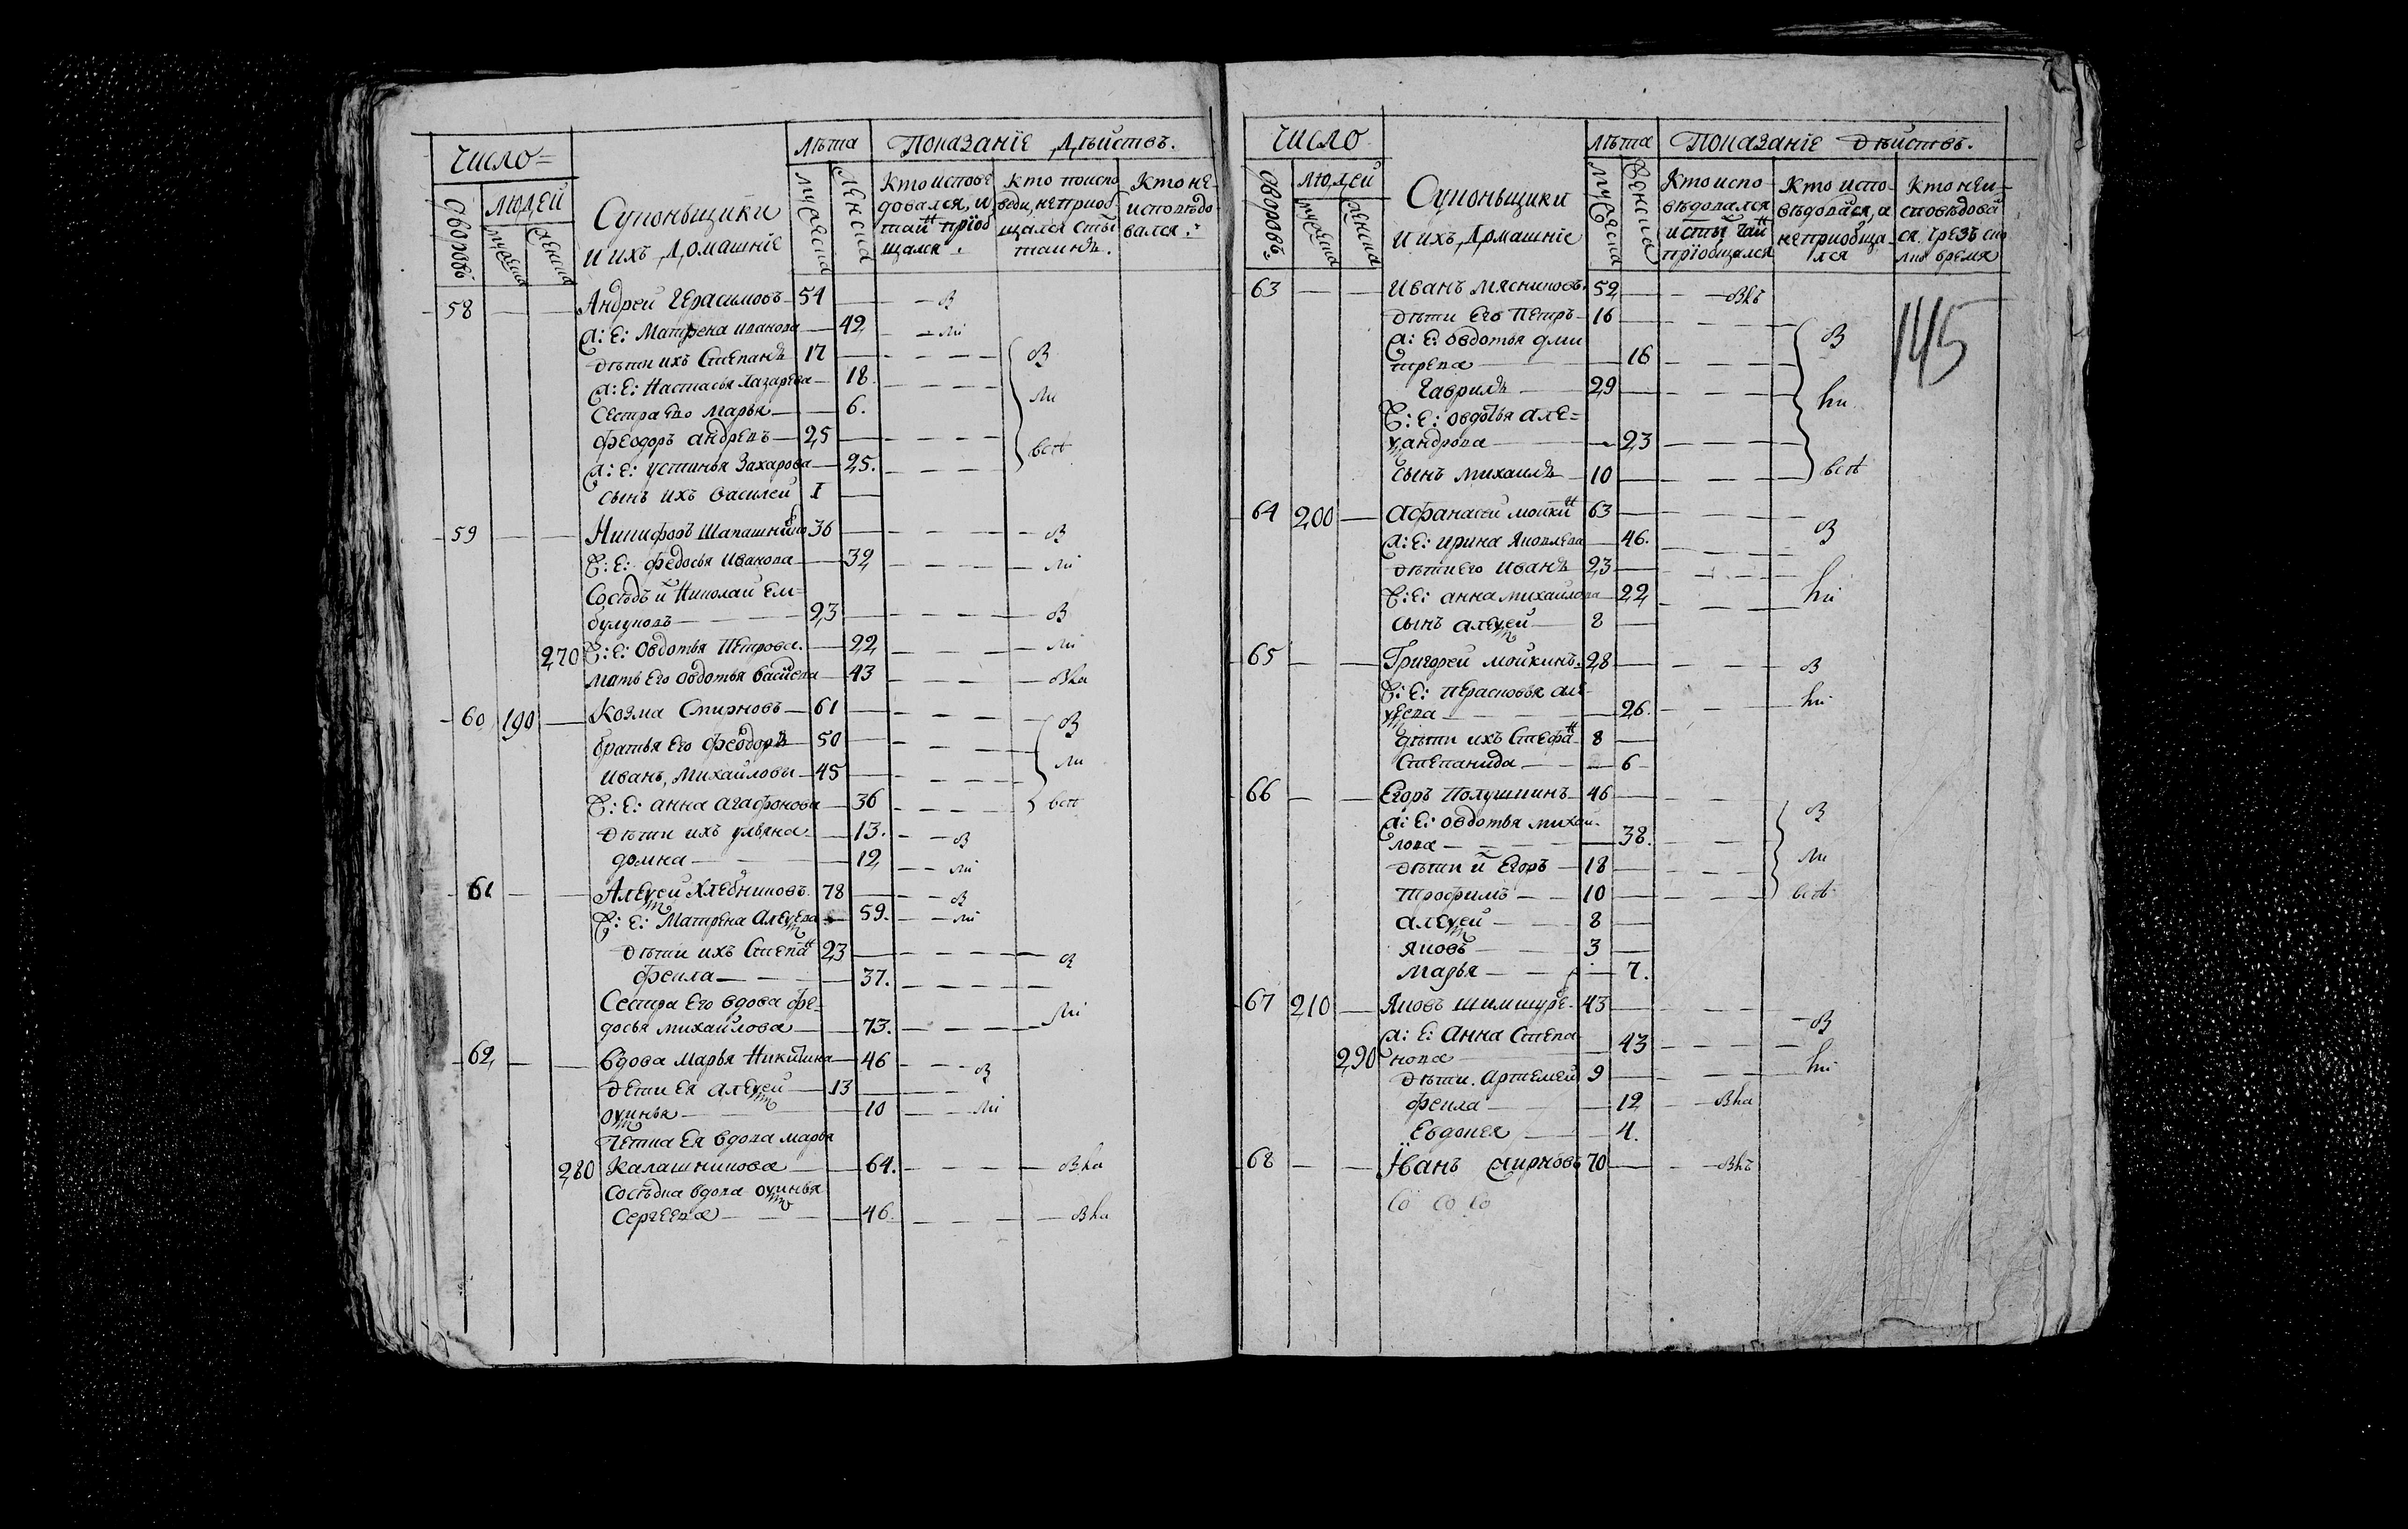 Число=
Лѣта
Показанiе Дѣйствъ.
дворовъ
Людей
мужеска
женска
Супоньщики
и ихъ Домашнiе
мужеска
женска
Кто испове
довался, и
таин прiоб
щался.
кто поиспо
веди, неприоб
щался стыѣ
таинъ.
Кто не-
исповѣдо
вался.
58 Андрей Герасимовъ 54 В
Ж: Е: Матрена иванова 42 ли
дѣти ихъ Степанъ 17 В
Ж: Е: Настасья Лазарева 18. ли
Сестра Его Марья 6.
Феодоръ андреевъ 25
Ж: Е: устинья Захарова 25. всѣ
сынъ ихъ Василей I
59 Никифоръ 36 В
Ж: Е: федосья Иванова 32 ли
Сосѣдъ и Николай Ем=
булуковъ 23 В
270 Ж: Е: Овдотья Петрова. 22 ли
мать Его Овдотья Васиева 43 Вла
60 190 Козма Смирновъ 61 В
братья Его феодоръ 50
иванъ, Михайловы 45 ли
Ж: Е: анна агафонова 36 всѣ
дѣти ихъ ульяна 13. В
домна 12 ли
61 Алеѯей Хлебниковъ 78 В
Ж: Е: Матрена Алеѯева 59. ли
дѣти ихъ Степан 23 В
фекла 37.
Сестра Его вдова фе-
досья михайлова 73. ли
62 Вдова Марья Никитина 46 В
дети Ея алеѯей 13
оѯинья 10 ли
тетка Ея вдова марья
280 Калашникова 64. Вла
Сосѣдка вдова оѯинья
Сергеева 46. Вла
Число
Лѣта
Показанiе дѣйствъ.
дворовъ.
Людей
мужеска
женска
Супоньщики
и ихъ Домашнiе
мужеска
Женска
Кто испо
вѣдовался
и сты таин
прiобщался
Кто испо-
вѣдовася, а
неприобща-
лся
Кто неи-
споведова
ся. чрезъ ско
лко время
145
63 Иванъ Мясниковъ. 52 Влъ
дѣти Его Петръ 16 В
Ж: Е: Овдотья дми
треева 16
Гаврилъ 29 ли
Ж: Е: Овдотья але=
ѯандрова 23
сынъ михаилъ 10 всѣ
64 200 Афанасей мойкин 63 В
Ж: Е: ирина Яковлева 46.
дѣти Его Иванъ 23
Ж: Е: анна михайлова 22 ли
сынъ алеѯей 8
65 Григорей мойкинъ. 28 В
Ж: Е: Прасковья але-
ѯеева 26. ли
дѣти ихъ Стефан 8
Степанида 6
66 Егоръ Полушкинъ 46 В
Ж: Е: овдотья михаи-
лова 38.
дѣти и Егоръ 18 ли
Трофимъ 10 всѣ
алеѯей 8
Яковъ 3
Марья 7.
67 210 Яковъ 43 В
Ж: Е: Анна Степа
290 нова 43 ли
дѣти. Артемей 9
фекла 12 Вла
Евдокея 4.
68 Iванъ Смирновъ 70 Влъ
Со со со